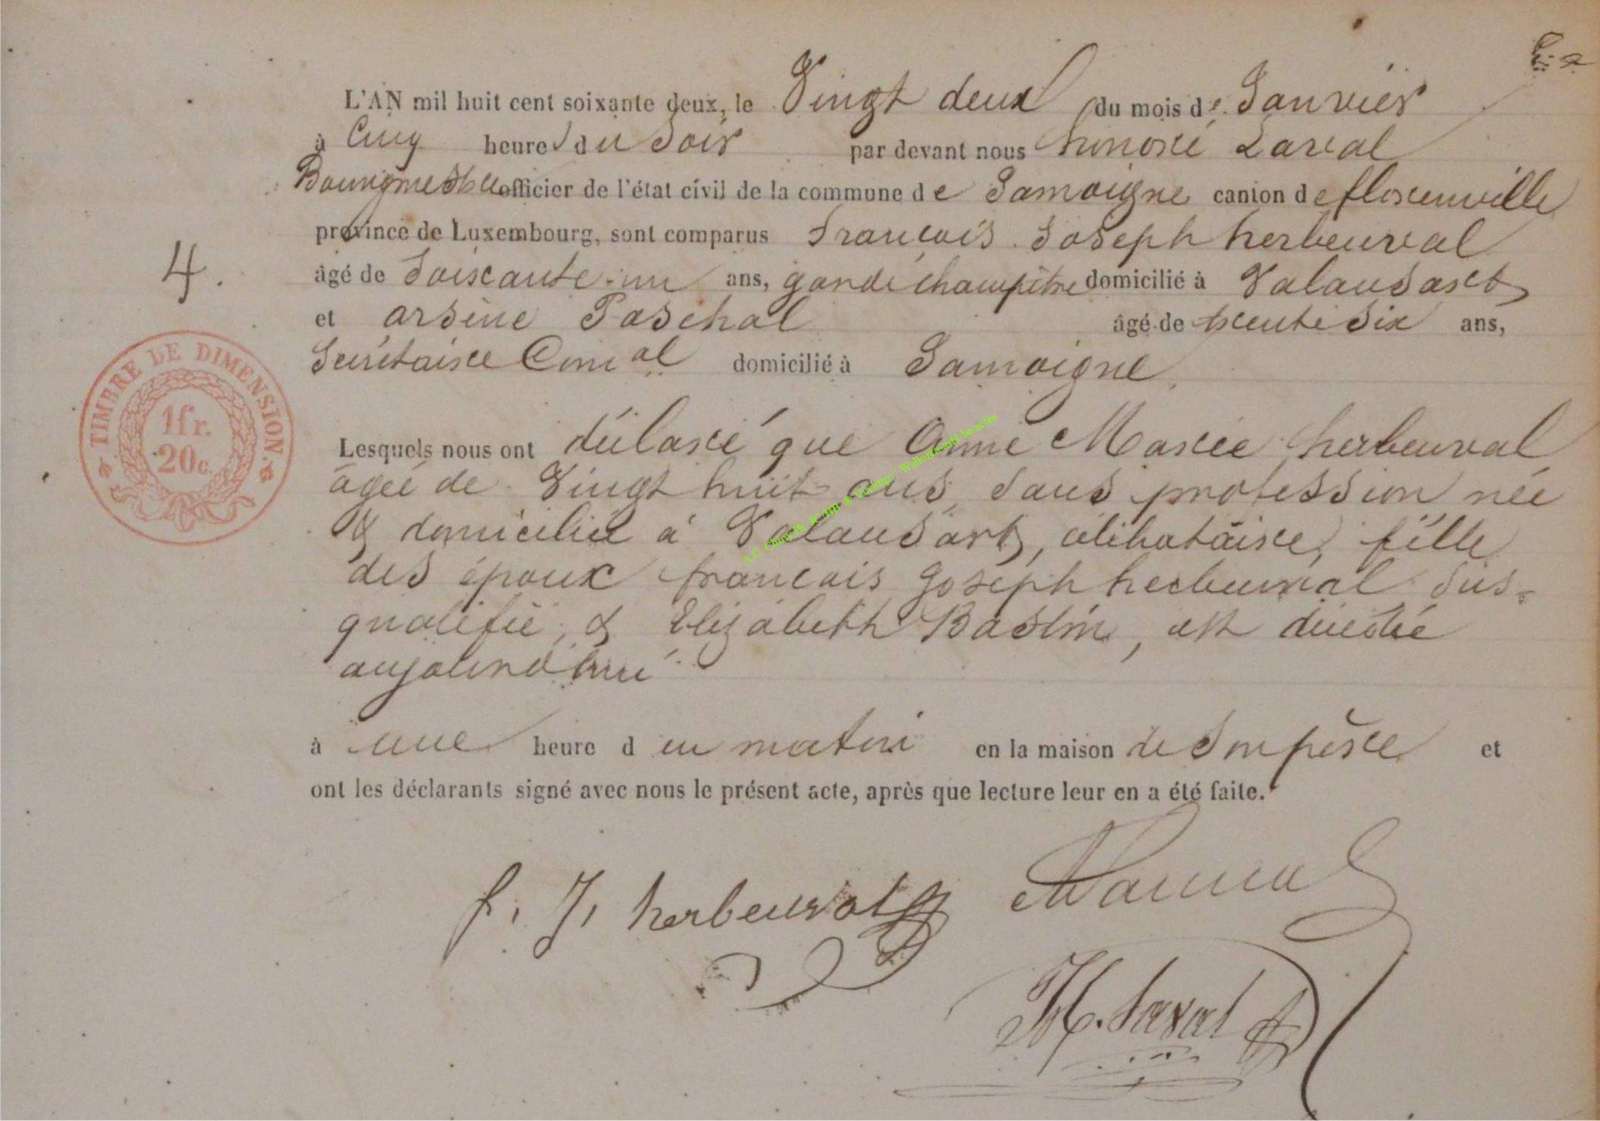 L'AN mil huit cent soixante deux, le Vingt deux du mois de Janvier
à Cinq heures du Soir par devant nous honoré Laval
Bourgmestre officier de l'état civil de la commune de Jamoigne canton de florenville
province de Luxembourg, sont comparus François Joseph herbeuval
4.
âgé de Soixante-un ans, garde champêtre domicilié à Valansart
et arsène Paschal âgé de trente Six ans,
Secrétaire Comal domicilié à Jamoigne
TIMBRE DE DIMENSION.
1fr.
20c.
Lesquels nous ont déclaré que Anne Marie herbeuval
âgée de Vingt huit ans Sans profession née
& domiciliée à Valansart, célibataire, fille
des époux françois Joseph herbeuval Sus-
qualifié, & Elizabeth Baslin, est décédée
aujourd'hui
à une heure du matin en la maison de Son père et
ont les déclarants signé avec nous le présent acte, après que lecture leur en a été faite.
f. J. herbeuval
H. Laval